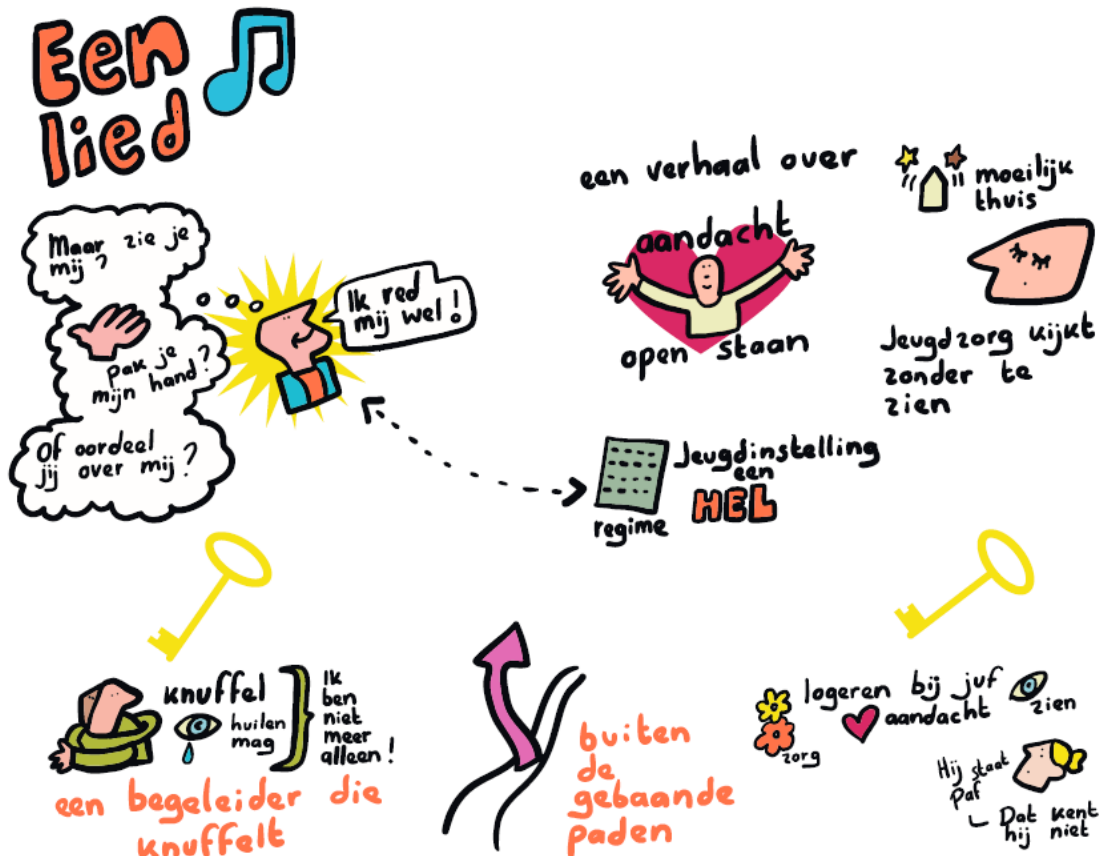 Een
lied
Maar zie je
mij?
pak je
mijn hand?
Of oordeel
jij over mij?
Ik red
mij wel!
een verhaal over
aandacht
open staan
moeilijk
thuis
Jeugdzorg kijkt
zonder te
zien
regime
Jeugdinstelling
een
HEL
knuffel
huilen
mag
Ik
ben
niet
meer
alleen!
een begeleider die
knuffelt
buiten
de
gebaande
paden
logeren bij juf
aandacht
zien
zorg
Hij staat
paf
Dat kent
hij niet